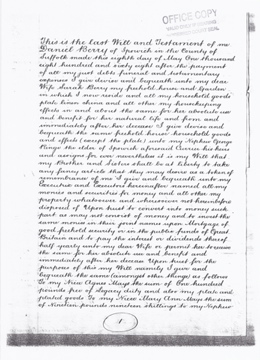 OFFICE COPY
This is the last Will and Testament of me
Daniel Berry of Ipswich in the County of
Suffolk made this eighth day of May One thousand
eight hundred and sixty eight after the payment
of all my just debts funeral and testamentary
expenses I give devise and bequeath unto my dear
Wife Sarah Berry my freehold house and Garden
in which I now reside and all my household goods
plate linen china and all other my household
effects in and about the same for her absolute use
and benefit for her natural life and from and
immediately after her decease I give devise and
bequeath the same freehold house household goods
and effects (except the plate) unto my Nephew George
the elder of Ipswich aforesaid his heirs
and assigns for ever nevertheless it is my Will that
my Brother and Sisters shall be at liberty to take
any funny article that they may desire as a token of
remembrance of me I give and bequeath unto my
Executrix and Executors hereinafter named all my
monies and securities for money and all other my
property whatsoever and wheresoever not hereinbefore
disposed of Upon trust to convert into money such
part as may not consist of money and to invest the
same monies in their good names upon Mortgage of
good freehold security or in the public funds of Great
Britain and to pay the interest or dividends thereof
half yearly unto my dear Wife or permit her to receive
the same for her absolute use and benefit and
immediately after her decease Upon trust for the
purposes of this my Will namely I give and
bequeath the same (amongst other things) as follows
To my Niece Agnes Mays the sum of One hundred
pounds free of Legacy duty and also my plate and
plated goods To my Niece Mary Ann Mays the sum
of Nineteen pounds nineteen shillings to my Nephew
1